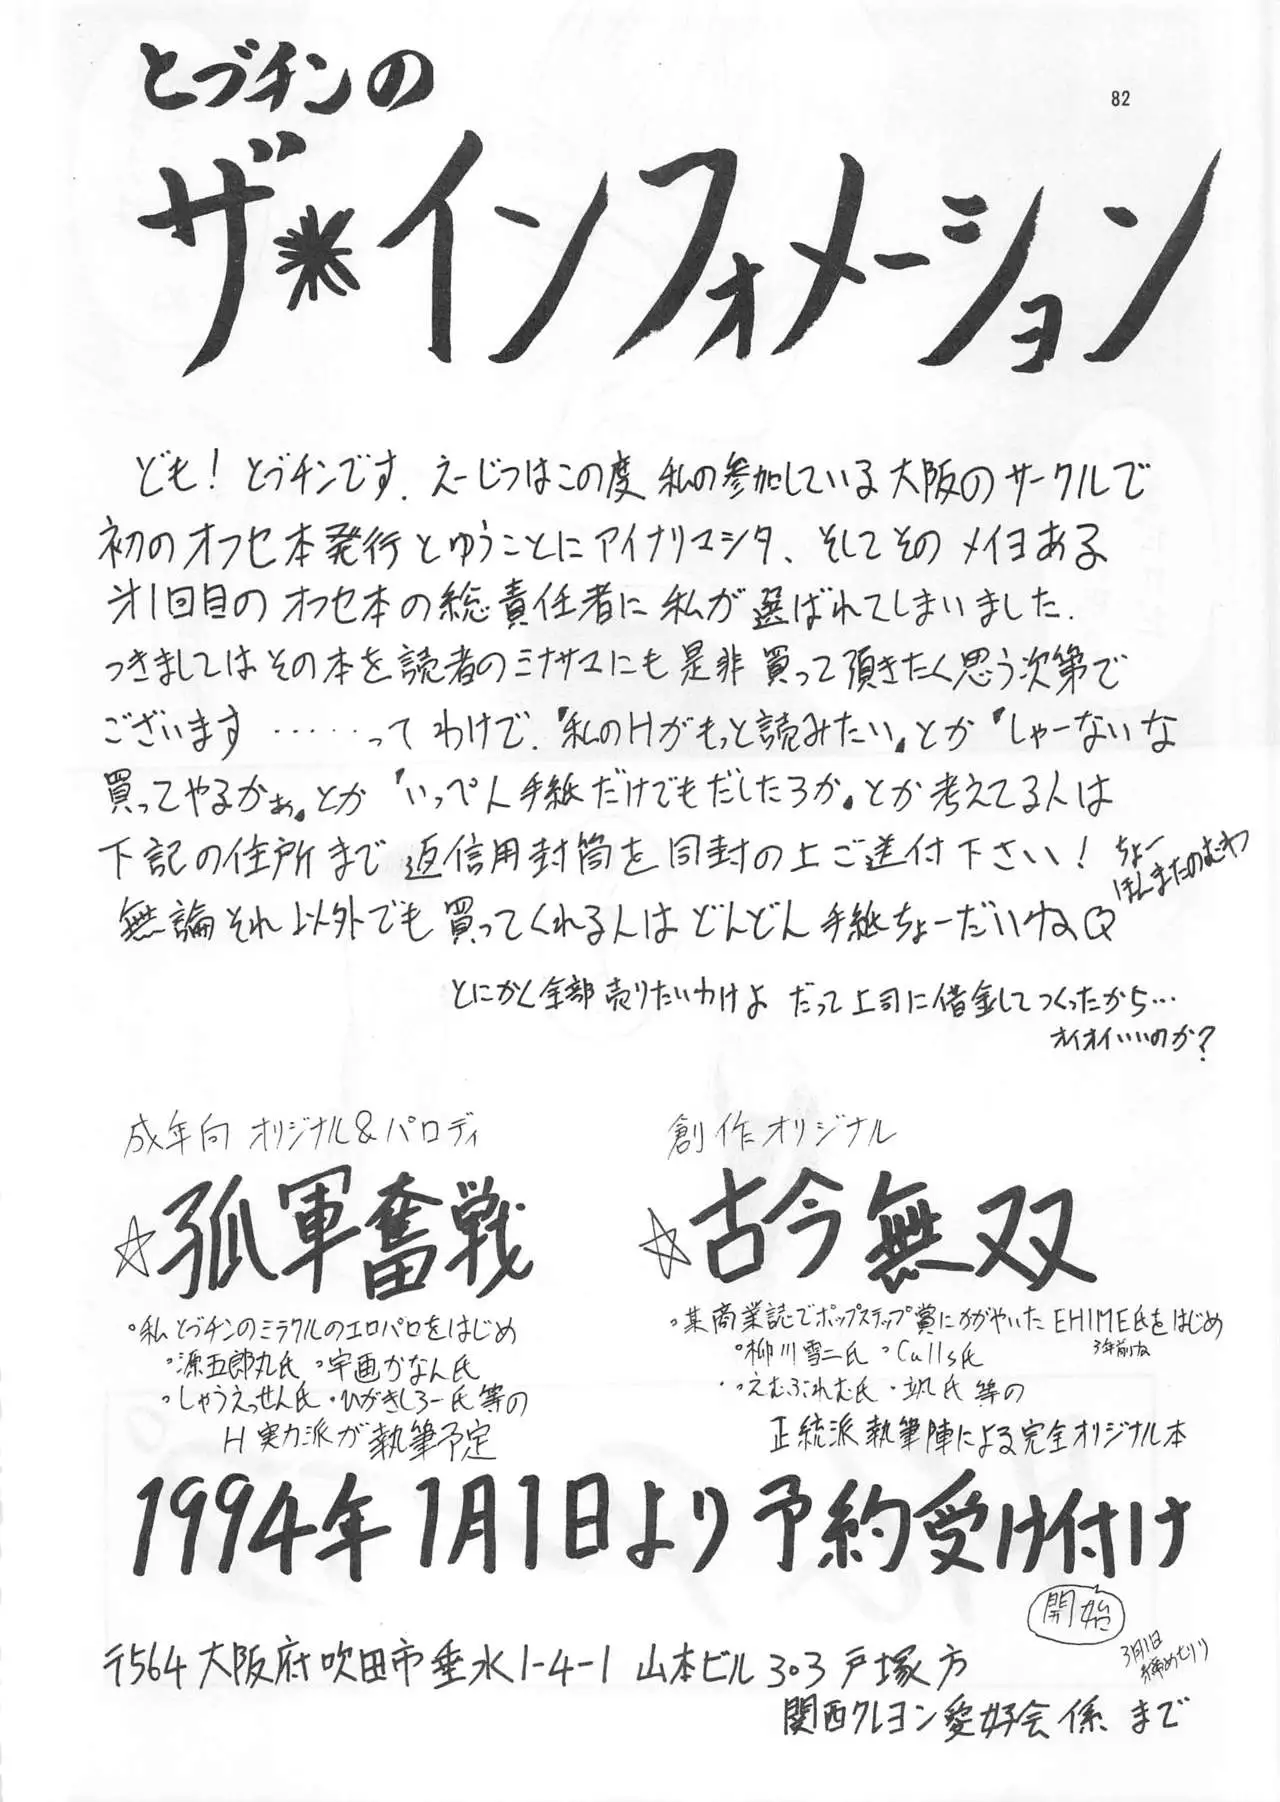 とづチンの
82
ザ＊インフォメーション
ども！とづチンです．えーじつはこの度 私の参加している大阪のサークルで
初のオフセ本発行とゆうことにアイナリマシタ、そしてそのメイヨある
才1回目のオフセ本の総責任者に私が選ばれてしまいました．
つきましてはその本を読者のミナサマにも是非買って頂きたく思う次第で
ございます ……ってわけで．『私のHがもっと読みたい。』とか『しゃーないな
買ってやるかぁ。』とか『いっぺん手紙だけでもだしたろか。』とか考えてる人は
下記の住所まで返信用封筒を同封の上ご送付下さい！ ちょー
ほんまたのむわ
無論それ以外でも買ってくれる人はどんどん手紙ちょーだいねQ
とにかく全部売りたいわけよ だって上司に借金してつくったから…
オイオイいいのか？
成年向 オリジナル＆パロディ
☆孤軍奮戦
°私とづチンのミラクルのエロパロをはじめ
°源五郎丸氏 °宇画かなん氏
°しゃうえっせん氏・ひがきしろー氏等の
H実力派が執筆予定
創作オリジナル
☆古今無双
°某商業誌でポップステップ賞にかがやいたEHIME氏をはじめ
3年前ネ
°柳川雪二氏 °Culls氏
°えむぶれむ氏・颯氏等の
正統派執筆陣による完全オリジナル本
1994年1月1日より予約受け付け
開始
〒564 大阪府吹田市垂水1-4-1 山本ビル303 戸塚方
3月1日
締めきり
関西クレヨン愛好会 係 まで